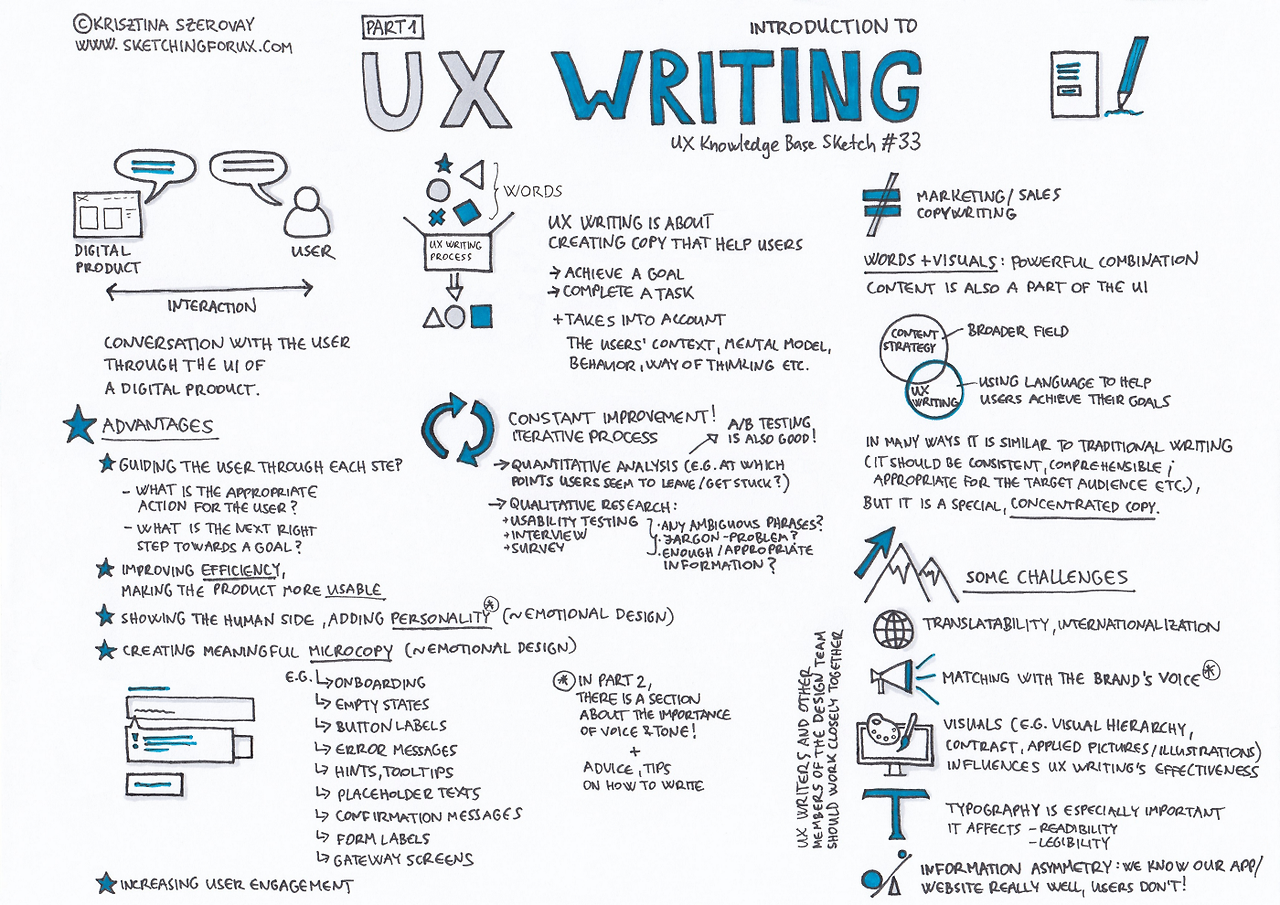 ©KRISZTINA SZEROVAY
WWW.SKETCHINGFORUX.COM
PART 1
INTRODUCTION TO
UX WRITING
UX Knowledge Base Sketch #33
DIGITAL
PRODUCT
USER
INTERACTION
CONVERSATION WITH THE USER
THROUGH THE UI OF
A DIGITAL PRODUCT.
WORDS
UX WRITING
PROCESS
UX WRITING IS ABOUT
CREATING COPY THAT HELP USERS
→ ACHIEVE A GOAL
→ COMPLETE A TASK
+ TAKES INTO ACCOUNT
THE USERS' CONTEXT, MENTAL MODEL,
BEHAVIOR, WAY OF THINKING ETC.
≠ MARKETING/SALES
COPYWRITING
WORDS + VISUALS: POWERFUL COMBINATION
CONTENT IS ALSO A PART OF THE UI
CONTENT
STRATEGY
BROADER FIELD
UX
WRITING
USING LANGUAGE TO HELP
USERS ACHIEVE THEIR GOALS
IN MANY WAYS IT IS SIMILAR TO TRADITIONAL WRITING
(IT SHOULD BE CONSISTENT, COMPREHENSIBLE,
APPROPRIATE FOR THE TARGET AUDIENCE ETC.),
BUT IT IS A SPECIAL, CONCENTRATED COPY.
ADVANTAGES
GUIDING THE USER THROUGH EACH STEP
- WHAT IS THE APPROPRIATE
ACTION FOR THE USER?
- WHAT IS THE NEXT RIGHT
STEP TOWARDS A GOAL?
IMPROVING EFFICIENCY,
MAKING THE PRODUCT MORE USABLE
SHOWING THE HUMAN SIDE, ADDING PERSONALITY* (~EMOTIONAL DESIGN)
CREATING MEANINGFUL MICROCOPY (~EMOTIONAL DESIGN)
E.G. ↳ ONBOARDING
↳ EMPTY STATES
↳ BUTTON LABELS
↳ ERROR MESSAGES
↳ HINTS, TOOLTIPS
↳ PLACEHOLDER TEXTS
↳ CONFIRMATION MESSAGES
↳ FORM LABELS
↳ GATEWAY SCREENS
INCREASING USER ENGAGEMENT
CONSTANT IMPROVEMENT!
ITERATIVE PROCESS
A/B TESTING
IS ALSO GOOD!
→ QUANTITATIVE ANALYSIS (E.G. AT WHICH
POINTS USERS SEEM TO LEAVE/GET STUCK?)
→ QUALITATIVE RESEARCH:
+ USABILITY TESTING
+ INTERVIEW
+ SURVEY
· ANY AMBIGUOUS PHRASES?
· JARGON-PROBLEM?
· ENOUGH/APPROPRIATE
INFORMATION?
* IN PART 2,
THERE IS A SECTION
ABOUT THE IMPORTANCE
OF VOICE & TONE!
+
ADVICE, TIPS
ON HOW TO WRITE
UX WRITERS AND OTHER
MEMBERS OF THE DESIGN TEAM
SHOULD WORK CLOSELY TOGETHER
SOME CHALLENGES
TRANSLATABILITY, INTERNATIONALIZATION
MATCHING WITH THE BRAND'S VOICE*
VISUALS (E.G. VISUAL HIERARCHY,
CONTRAST, APPLIED PICTURES/ILLUSTRATIONS)
INFLUENCES UX WRITING'S EFFECTIVENESS
T
TYPOGRAPHY IS ESPECIALLY IMPORTANT
IT AFFECTS - READIBILITY
- LEGIBILITY
INFORMATION ASYMMETRY: WE KNOW OUR APP/
WEBSITE REALLY WELL, USERS DON'T!